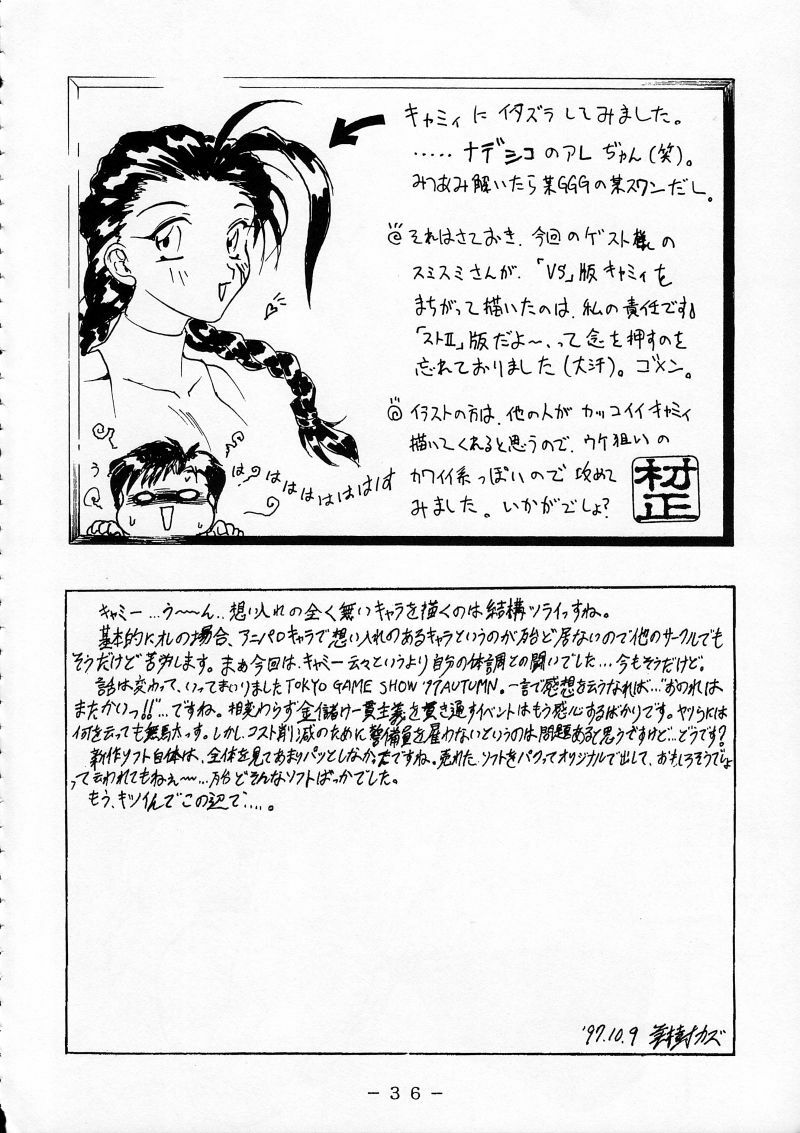 キャミィに イタズラしてみました。
‥‥‥ナデシコのアレぢゃん(笑)。
みつあみ解いたら某GGGの某スワンだし。
@それはさておき、今回のゲスト様の
スミスミさんが、「VS」版キャミィを
まちがって描いたのは、私の責任です!
「ストⅡ」版だよ〜、って念を押すのを
忘れておりました(大汗)。ゴメン。
@イラストの方は、他の人が カッコイイキャミィ
描いてくれると思うので、ウケ狙いの
カワイイ系っぽいので 攻めて
みました。いかがでしょ?
村正
う
はっはははははは
キャミー…う〜〜ん‥想い入れの全く無いキャラを描くのは結構ツライっすね。
基本的にオレの場合、アニパロのキャラで想い入れのあるキャラというのが殆ど居ないので他のサークルでも
そうだけど苦労します。まぁ今回は、キャミー云々というより自分の体調との闘いでした…今もそうだけど。
話は変わって、いってまいりましたTOKYO GAME SHOW '97AUTUMN。一言で感想を云うなれば…"おのれは
またかいっ!!"…ですね。相変わらず金儲け一貫主義を貫き通すイベントはもう感心するばかりです。ヤツらには
何を云っても無駄っす。しかし、コスト削減のために警備員を雇わないというのは問題あると思うですけど…どうです?
新作ソフト自体は、全体を見てあまりパッとしなかったですね。売れたソフトをパクってオリジナルで出して、おもしろそうでしょ
って云われてもねぇ〜〜…殆どそんなソフトばっかでした。
もう、キツイんでこの辺で…。
'97.10.9
カズ
-36-